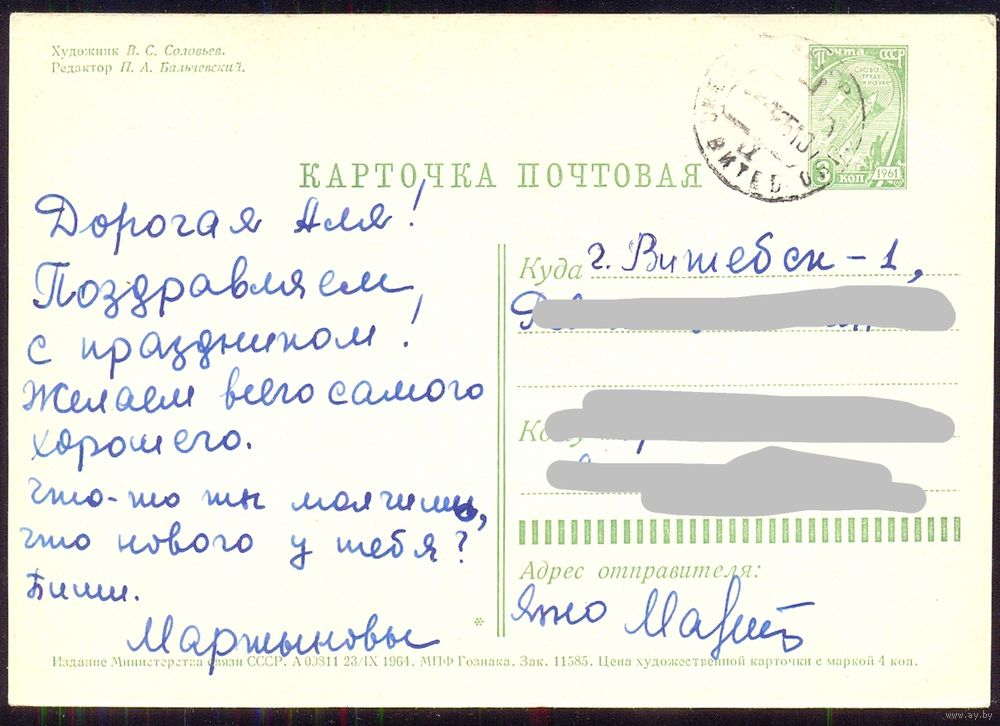 Художник В. С. Соловьев.
Редактор П. А. Бальчевский.
Почта СССР
3 КОП 1961
ВИТЕБ
КАРТОЧКА ПОЧТОВАЯ
Дорогая Аля!
Поздравляем,
с праздником!
Желаем всего самого
хорошего.
Что-то ты молчишь,
что нового у тебя?
Пиши.
Мартыновы
Куда г. Витебск-1,
Адрес отправителя:
*
Издание Министерства связи СССР. А 00811 23/IX 1964. МПФ Гознака. Зак. 11585. Цена художественной карточки с маркой 4 коп.
www.ay.by